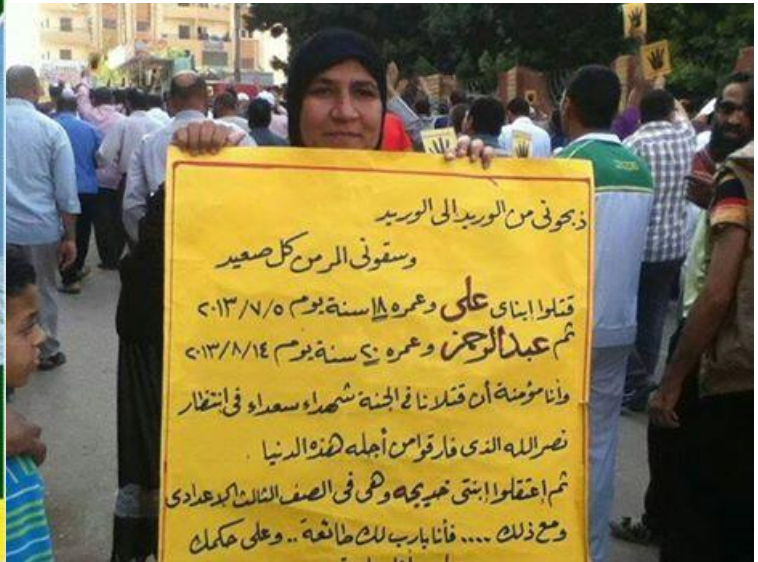 ذبحونى من الوريد الى الوريد
وسقونى المر من كل صعيد
قتلوا ابناى على وعمره ١٨ سنة يوم ٢٠١٣/٧/٥
ثم عبدالرحمن وعمره ٢٠ سنة يوم ٢٠١٣/٨/١٤
وأنا مؤمنة أن قتلانا فى الجنة شهداء سعداء فى انتظار
نصر الله الذى فارقوا من أجله هذه الدنيا .
ثم إعتقلوا إبنتى خديجه وهى فى الصف الثالث الإعدادى
ومع ذلك .... فأنا يارب لك طائعة .. وعلى حكمك